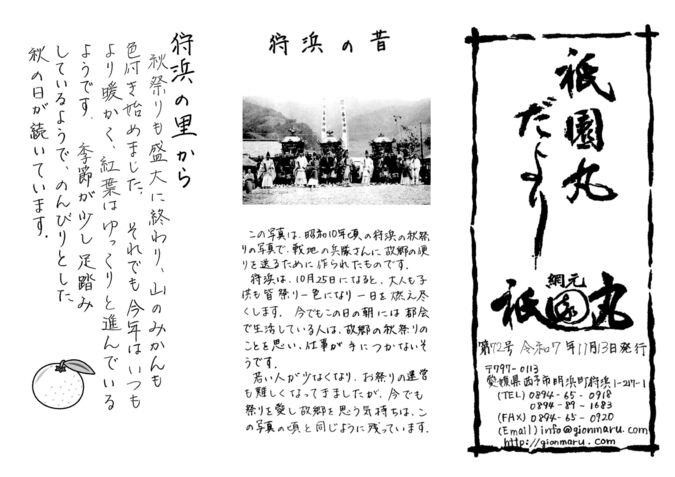 祇園丸
だより
網元
祇園丸
第72号 令和7年11月13日発行
〒797-0113
愛媛県西予市明浜町狩浜1-217-1
(TEL) 0894-65-0918
0894-89-1683
(FAX) 0894-65-0920
(Email) info@gionmaru.com
http://gionmaru.com
狩浜の昔
この写真は、昭和10年頃の狩浜の秋祭
りの写真で、戦地の兵隊さんに故郷の便
りを送るために作られたものです。
狩浜は、10月25日になると、大人も子
供も皆祭り一色になり一日を燃え尽
くします。今でもこの日の朝には都会
で生活している人は、故郷の秋祭りの
ことを思い、仕事が手につかないそ
うです。
若い人が少なくなり、お祭りの運営
も難しくなってきましたが、今でも
祭りを愛し故郷を思う気持ちは、こ
の写真の頃と同じように残っています。
狩浜の里から
秋祭りも盛大に終わり、山のみかんも
色付き始めました。それでも今年はいつも
より暖かく、紅葉はゆっくりと進んでいる
ようです。季節が少し足踏み
しているようで、のんびりとした
秋の日が続いています。